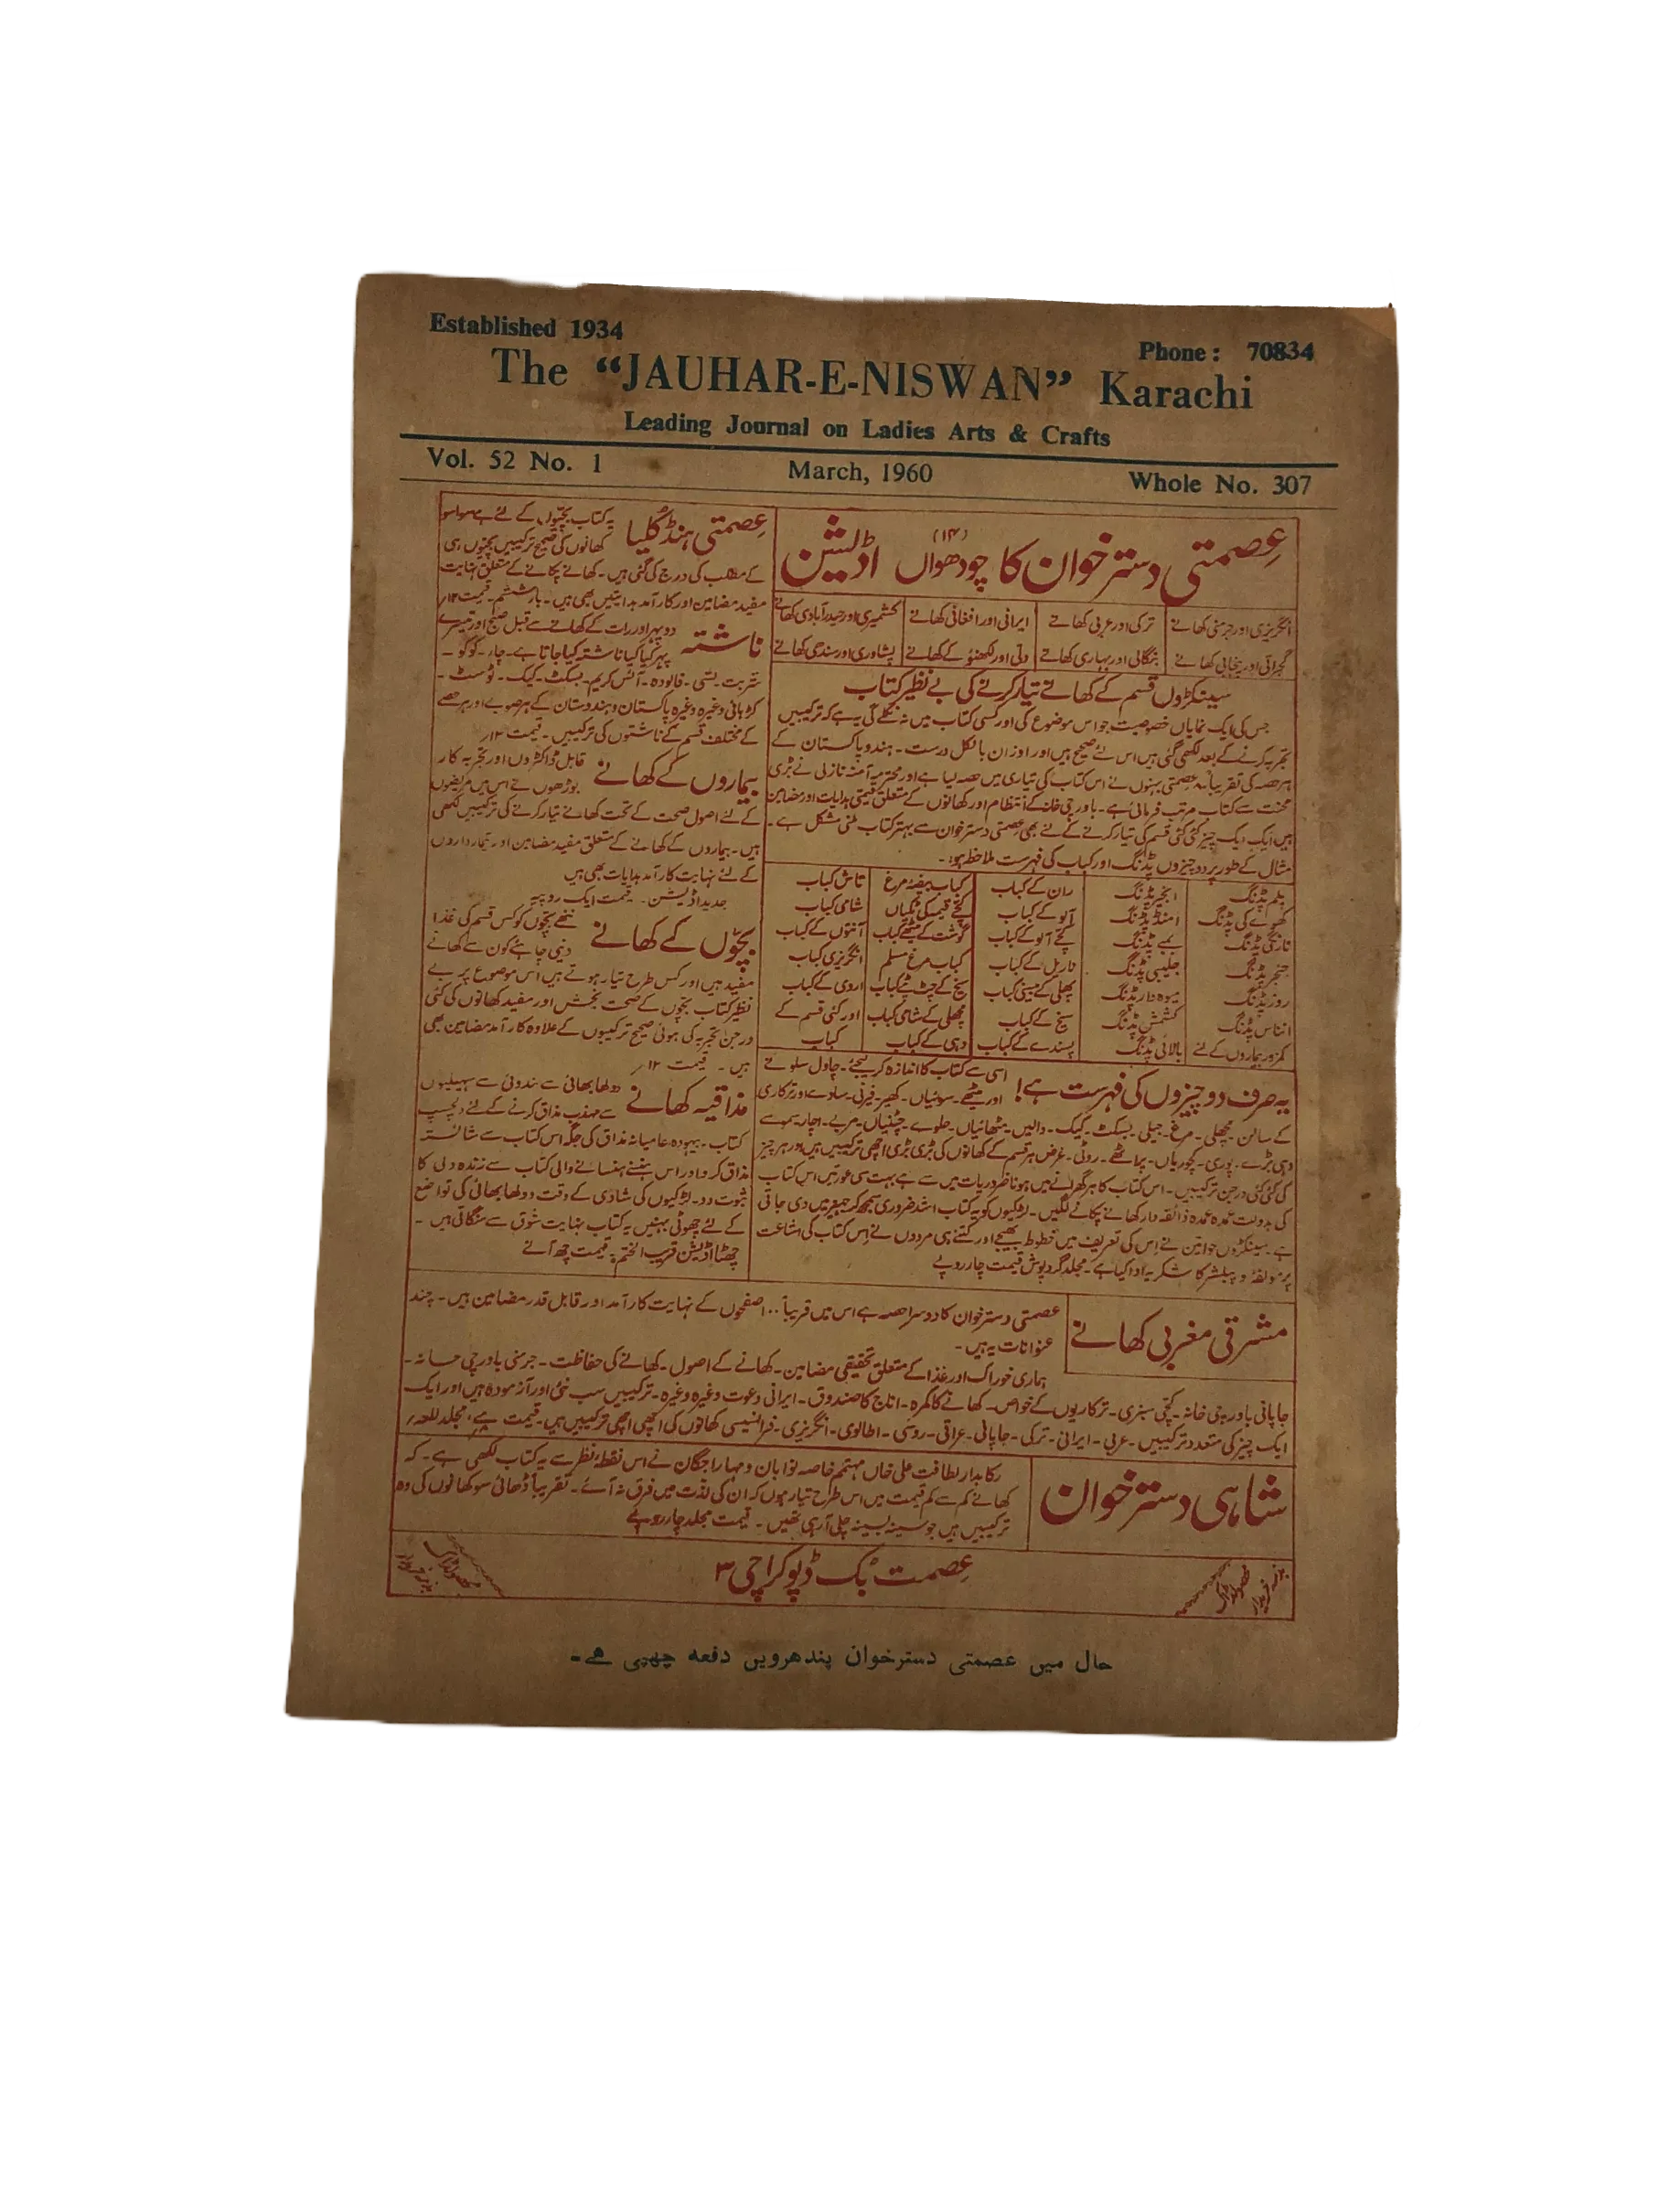 Established 1934
Phone : 70834
The “JAUHAR-E-NISWAN” Karachi
Leading Journal on Ladies Arts & Crafts
Vol. 52 No. 1 March, 1960 Whole No. 307
عصمتی دسترخوان کا چودھواں (۱۴) اڈیشن
انگریزی اور جرمنی کھانے ترکی اور عربی کھانے ایرانی اور افغانی کھانے کشمیری اور حیدرآبادی کھانے
گجراتی اور پنجابی کھانے بنگالی اور بہاری کھانے دلی اور لکھنؤ کے کھانے پشاوری اور سندھی کھانے
سینکڑوں قسم کے کھانے تیار کرنے کی بے نظیر کتاب
جس کی ایک نمایاں خصوصیت جو اس موضوع کی اور کسی کتاب میں نہ نکلے گی یہ ہے کہ ترکیبیں
تجربہ کرنے کے بعد لکھی گئی ہیں اس لئے صحیح ہیں اور اوزان بالکل درست۔ ہند و پاکستان کے
ہر حصہ کی تقریباً عصمتی بہنوں نے اس کتاب کی تیاری میں حصہ لیا ہے اور محترمہ آمنہ نازلی نے بڑی
محنت سے کتاب مرتب فرمائی ہے۔ باورچی خانہ کے انتظام اور کھانوں کے متعلق قیمتی ہدایات اور مضامین
ہیں ایک ایک چیز کئی کئی قسم کی تیار کرنے کے لئے بھی عصمتی دسترخوان سے بہتر کتاب ملنی مشکل ہے۔
مثال کے طور پر دو چیزوں پڈنگ اور کباب کی فہرست ملاحظہ ہو:۔
پلم پڈنگ انجیر پڈنگ ران کے کباب کباب بیضۂ مرغ تاش کباب
کھوئے کی پڈنگ امنڈ پڈنگ آلو کے کباب کچے قیمہ کی ٹکیاں شامی کباب
نارنگی پڈنگ بمبے پڈنگ کچے آلو کے کباب گوشت کے میٹھے کباب آنتوں کے کباب
جنجر پڈنگ جلیبی پڈنگ ناریل کے کباب کباب مرغ مسلم انگریزی کباب
روز پڈنگ میوہ دار پڈنگ مچھلی کے سیخی کباب سیخ کے چٹ پٹے کباب اروی کے کباب
انناس پڈنگ کشمش پڈنگ سیخ کے کباب مچھلی کے شامی کباب اور کئی قسم کے
کمزور بیماروں کے لئے بالائی پڈنگ پسندے کے کباب دہی کے کباب کباب
یہ صرف دو چیزوں کی فہرست ہے! اسی سے کتاب کا اندازہ کر لیجئے۔ چاول سلونے
اور میٹھے۔ سویاں۔ کھیر۔ فیرنی۔ سادے اور ترکاری
کے سالن۔ مچھلی۔ مرغ۔ جیلی۔ بسکٹ۔ کیک۔ دالیں۔ مٹھائیاں۔ حلوے۔ چٹنیاں۔ مربے۔ اچار۔ سموسے
دہی بڑے۔ پوری۔ کچوریاں۔ پراٹھے۔ روٹی۔ غرض ہر قسم کے کھانوں کی بڑی بڑی اچھی ترکیبیں ہیں اور ہر چیز
کی کئی کئی درجن ترکیبیں۔ اس کتاب کا ہر گھرانے میں ہونا ضروریات میں سے ہے بہت سی عورتیں اس کتاب
کی بدولت عمدہ عمدہ ذائقہ دار کھانے پکانے لگیں۔ لڑکیوں کو یہ کتاب اشد ضروری سمجھ کر جہیز میں دی جاتی
ہے۔ سینکڑوں خواتین نے اس کی تعریف میں خطوط بھیجے اور کتنے ہی مردوں نے اس کتاب کی اشاعت
پر مولفہ و پبلشر کا شکریہ ادا کیا ہے۔ مجلد گرد پوش قیمت چار روپے
عصمتی ہنڈ کلیا
یہ کتاب بچیوں کے لئے ہے
کھانوں کی صحیح ترکیبیں بچیوں ہی
کے مطلب کی درج کی گئی ہیں۔ کھانے پکانے کے متعلق نہایت
مفید مضامین اور کارآمد ہدایتیں بھی ہیں۔ بار ششم۔ قیمت ۱۲؍
ناشتہ
دوپہر اور رات کے کھانے سے قبل صبح اور تیسرے
پہر کیا کیا ناشتہ کیا جاتا ہے۔ چار۔ کوکو۔
شربت۔ لسّی۔ فالودہ۔ آئس کریم۔ بسکٹ۔ کیک۔ ٹوسٹ۔
کڑہائی وغیرہ وغیرہ پاکستان و ہندوستان کے ہر صوبے اور ہر حصے
کے مختلف قسم کے ناشتوں کی ترکیبیں۔ قیمت ۱۲؍
بیماروں کے کھانے
قابل ڈاکٹروں اور تجربہ کار
بوڑھوں نے اس میں مریضوں
کے لئے اصول صحت کے تحت کھانے تیار کرنے کی ترکیبیں لکھی
ہیں۔ بیماروں کے کھانے کے متعلق مفید مضامین اور تیمارداروں
کے لئے نہایت کارآمد ہدایات بھی ہیں
جدید اڈیشن۔ قیمت ایک روپیہ
بچّوں کے کھانے
ننھے بچوں کو کس قسم کی غذا
دینی چاہئے کون سے کھانے
مفید ہیں اور کس طرح تیار ہوتے ہیں اس موضوع پر بے
نظیر کتاب بچوں کے صحت بخش اور مفید کھانوں کی کئی
درجن تجربہ کی ہوئی صحیح ترکیبوں کے علاوہ کارآمد مضامین بھی
ہیں۔ قیمت ۱۲؍
مذاقیہ کھانے
دولھا بھائی سے نندوئی سے سہیلیوں
سے مہذب مذاق کرنے کے لئے دلچسپ
کتاب۔ بیہودہ عامیانہ مذاق کی جگہ اس کتاب سے شائستہ
مذاق کرو اور اس ہنسنے ہنسانے والی کتاب سے زندہ دلی کا
ثبوت دو۔ لڑکیوں کی شادی کے وقت دولھا بھائی کی تواضع
کے لئے چھوٹی بہنیں یہ کتاب نہایت شوق سے منگاتی ہیں۔
چھٹا اڈیشن قریب الختم۔ قیمت چھ آنے
مشرقی مغربی کھانے
عصمتی دسترخوان کا دوسرا حصہ ہے اس میں قریباً ۱۰۰ صفحوں کے نہایت کارآمد اور قابل قدر مضامین ہیں۔ چند
عنوانات یہ ہیں۔
ہماری خوراک اور غذا کے متعلق تحقیقی مضامین۔ کھانے کے اصول۔ کھانے کی حفاظت۔ جرمنی باورچی خانہ۔
جاپانی باورچی خانہ۔ کچی سبزی۔ ترکاریوں کے خواص۔ کھانے کا کمرہ۔ اناج کا صندوق۔ ایرانی دعوت وغیرہ وغیرہ۔ ترکیبیں سب نئی اور آزمودہ ہیں اور ایک
ایک چیز کی متعدد ترکیبیں۔ عربی۔ ایرانی۔ ترکی۔ جاپانی۔ عراقی۔ روسی۔ اطالوی۔ انگریزی۔ فرانسیسی کھانوں کی اچھی اچھی ترکیبیں ہیں۔ قیمت مجلد
شاہی دسترخوان
رکابدار لطافت علی خاں مہتمم خاصہ نوابان و مہاراجگان نے اس نقطۂ نظر سے یہ کتاب لکھی ہے۔ کہ
کھانے کم سے کم قیمت میں اس طرح تیار ہوں کہ ان کی لذت میں فرق نہ آئے۔ تقریباً ڈھائی سو کھانوں کی وہ
ترکیبیں ہیں جو سینہ بسینہ چلی آ رہی تھیں۔ قیمت مجلد چار روپے
عصمت بک ڈپو کراچی ۳
محصولڈاک بذمہ خریدار
محصولڈاک بذمہ خریدار
حال میں عصمتی دسترخوان پندھرویں دفعہ چھپی ھے۔